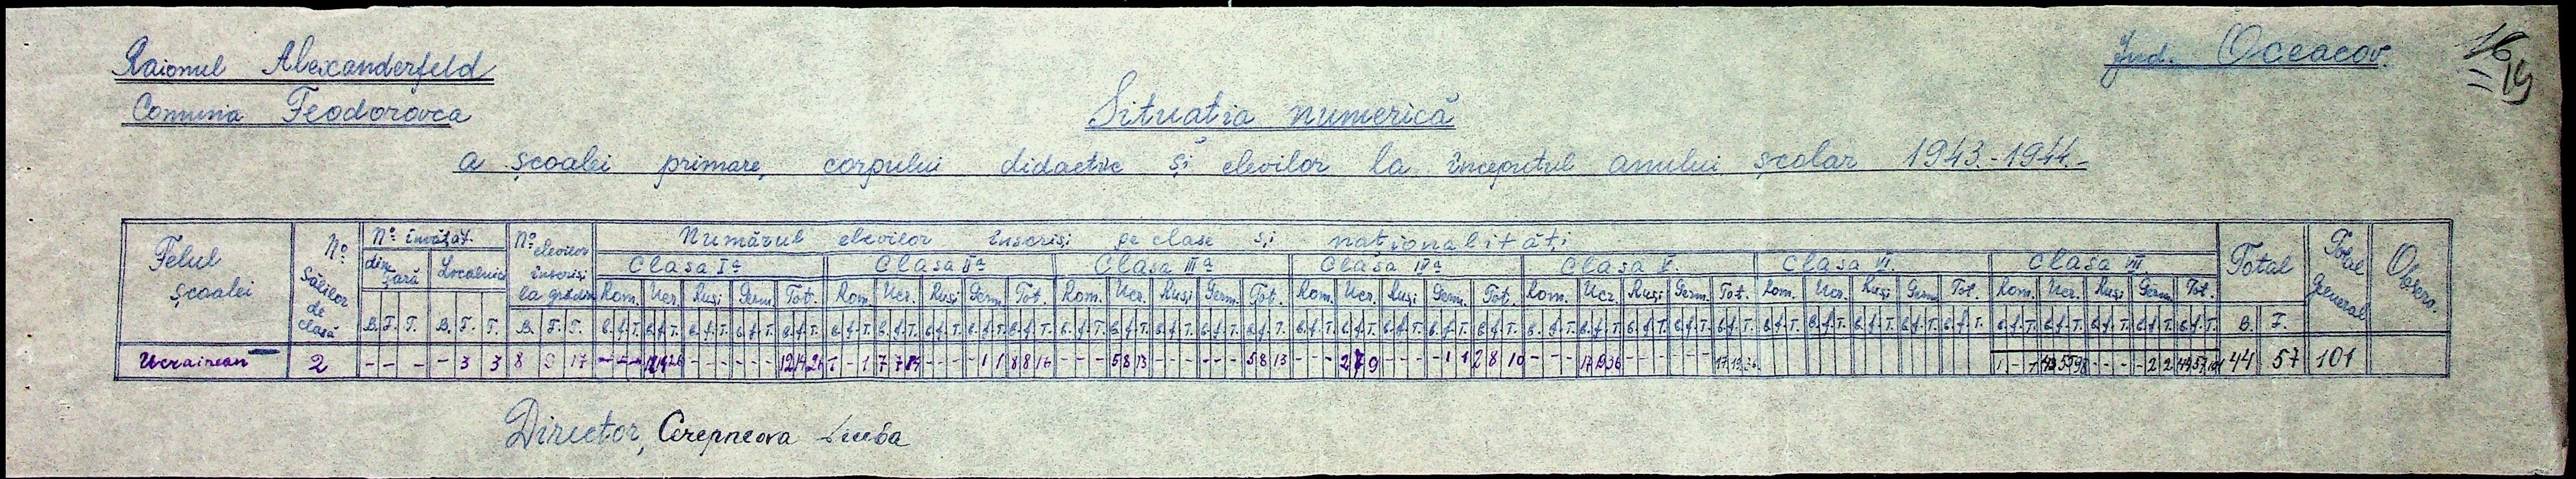 Raionul Alexanderfeld
Jud. Oceacov.
16
19
Comuna Feodorovca
Situația numerică
a școalei primare, corpului didactic și elevilor la începutul anului școlar 1943.-1944.-
Felul școalei
No sălilor de clasă
No învățăt.
No elevilor înscriși la grădin
Numărul elevilor înscriși pe clase și naționalități
Total
Total general
Observ.
din țară Localnici
Clasa Iª Clasa IIª Clasa IIIª Clasa IVª Clasa V. Clasa VI. Clasa VII.
Rom. Ucr. Ruși Germ. Tot. Rom. Ucr. Ruși Germ. Tot. Rom. Ucr. Ruși Germ. Tot. Rom. Ucr. Ruși Germ. Tot. Rom. Ucr. Ruși Germ. Tot. Rom. Ucr. Ruși Germ. Tot. Rom. Ucr. Ruși Germ. Tot.
B. F. T. B. F. T. B. F. T. B. f. T. B. f. T. B. f. T. B. f. T. B. f. T. B. f. T. B. f. T. B. f. T. B. f. T. B. f. T. B. f. T. B. f. T. B. f. T. B. f. T. B. f. T. B. f. T. B. f. T. B. f. T. B. f. T. B. f. T. B. f. T. B. f. T. B. f. T. B. f. T. B. f. T. B. f. T. B. f. T. B. f. T. B. f. T. B. f. T. B. f. T. B. f. T. B. f. T. B. f. T. B. f. T. B. F.
Ucrainean 2 - - - - 3 3 8 9 17 - - - 12 14 26 - - - - - - 12 14 26 1 - 1 7 7 14 - - - - 1 1 8 8 16 - - - 5 8 13 - - - - - - 5 8 13 - - - 2 7 9 - - - - 1 1 2 8 10 - - - 17 19 36 - - - - - - 17 19 36 1 - 1 43 55 98 - - - - 2 2 44 57 101 44 57 101
Director, Cerepneova Liuba